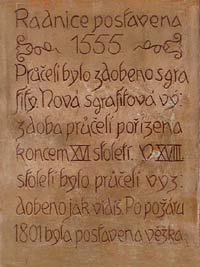 Radnice postavena
1555
Průčelí bylo zdobeno sgra
fity. Nová sgrafitová vý:
zdoba průčelí pořízena
koncem XVI století. V XVIII.
století bylo průčelí vyz
dobeno jak vidíš. Po požáru
1801 byla postavena věžka